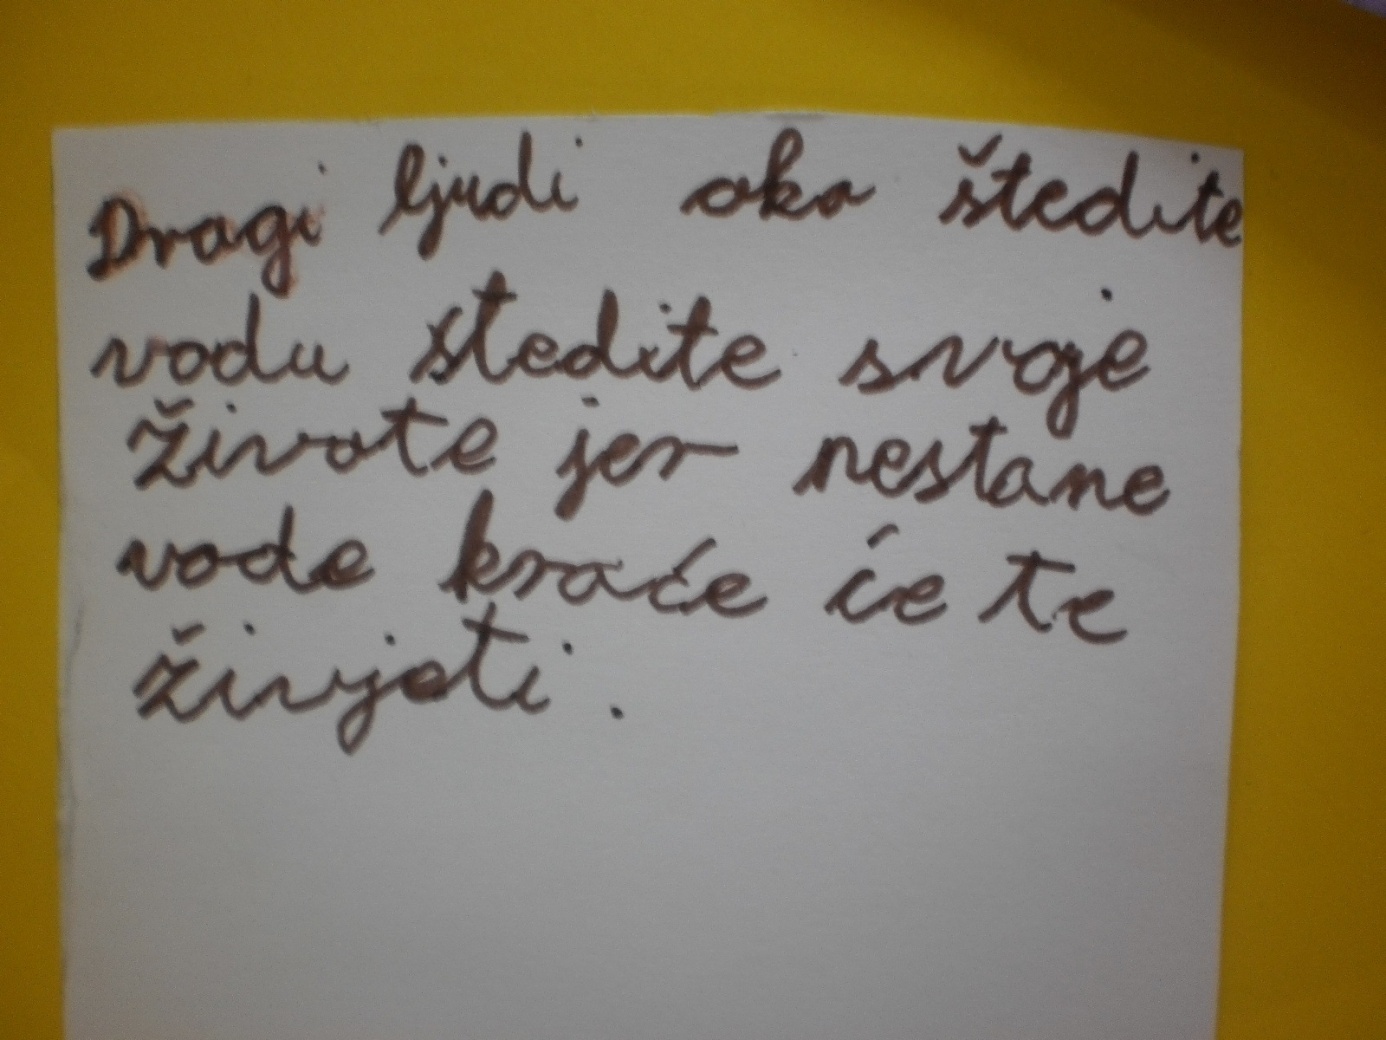 Dragi ljudi oko štedite
vodu stedite svoje
živote jer nestane
vode kraće će te
živjeti.